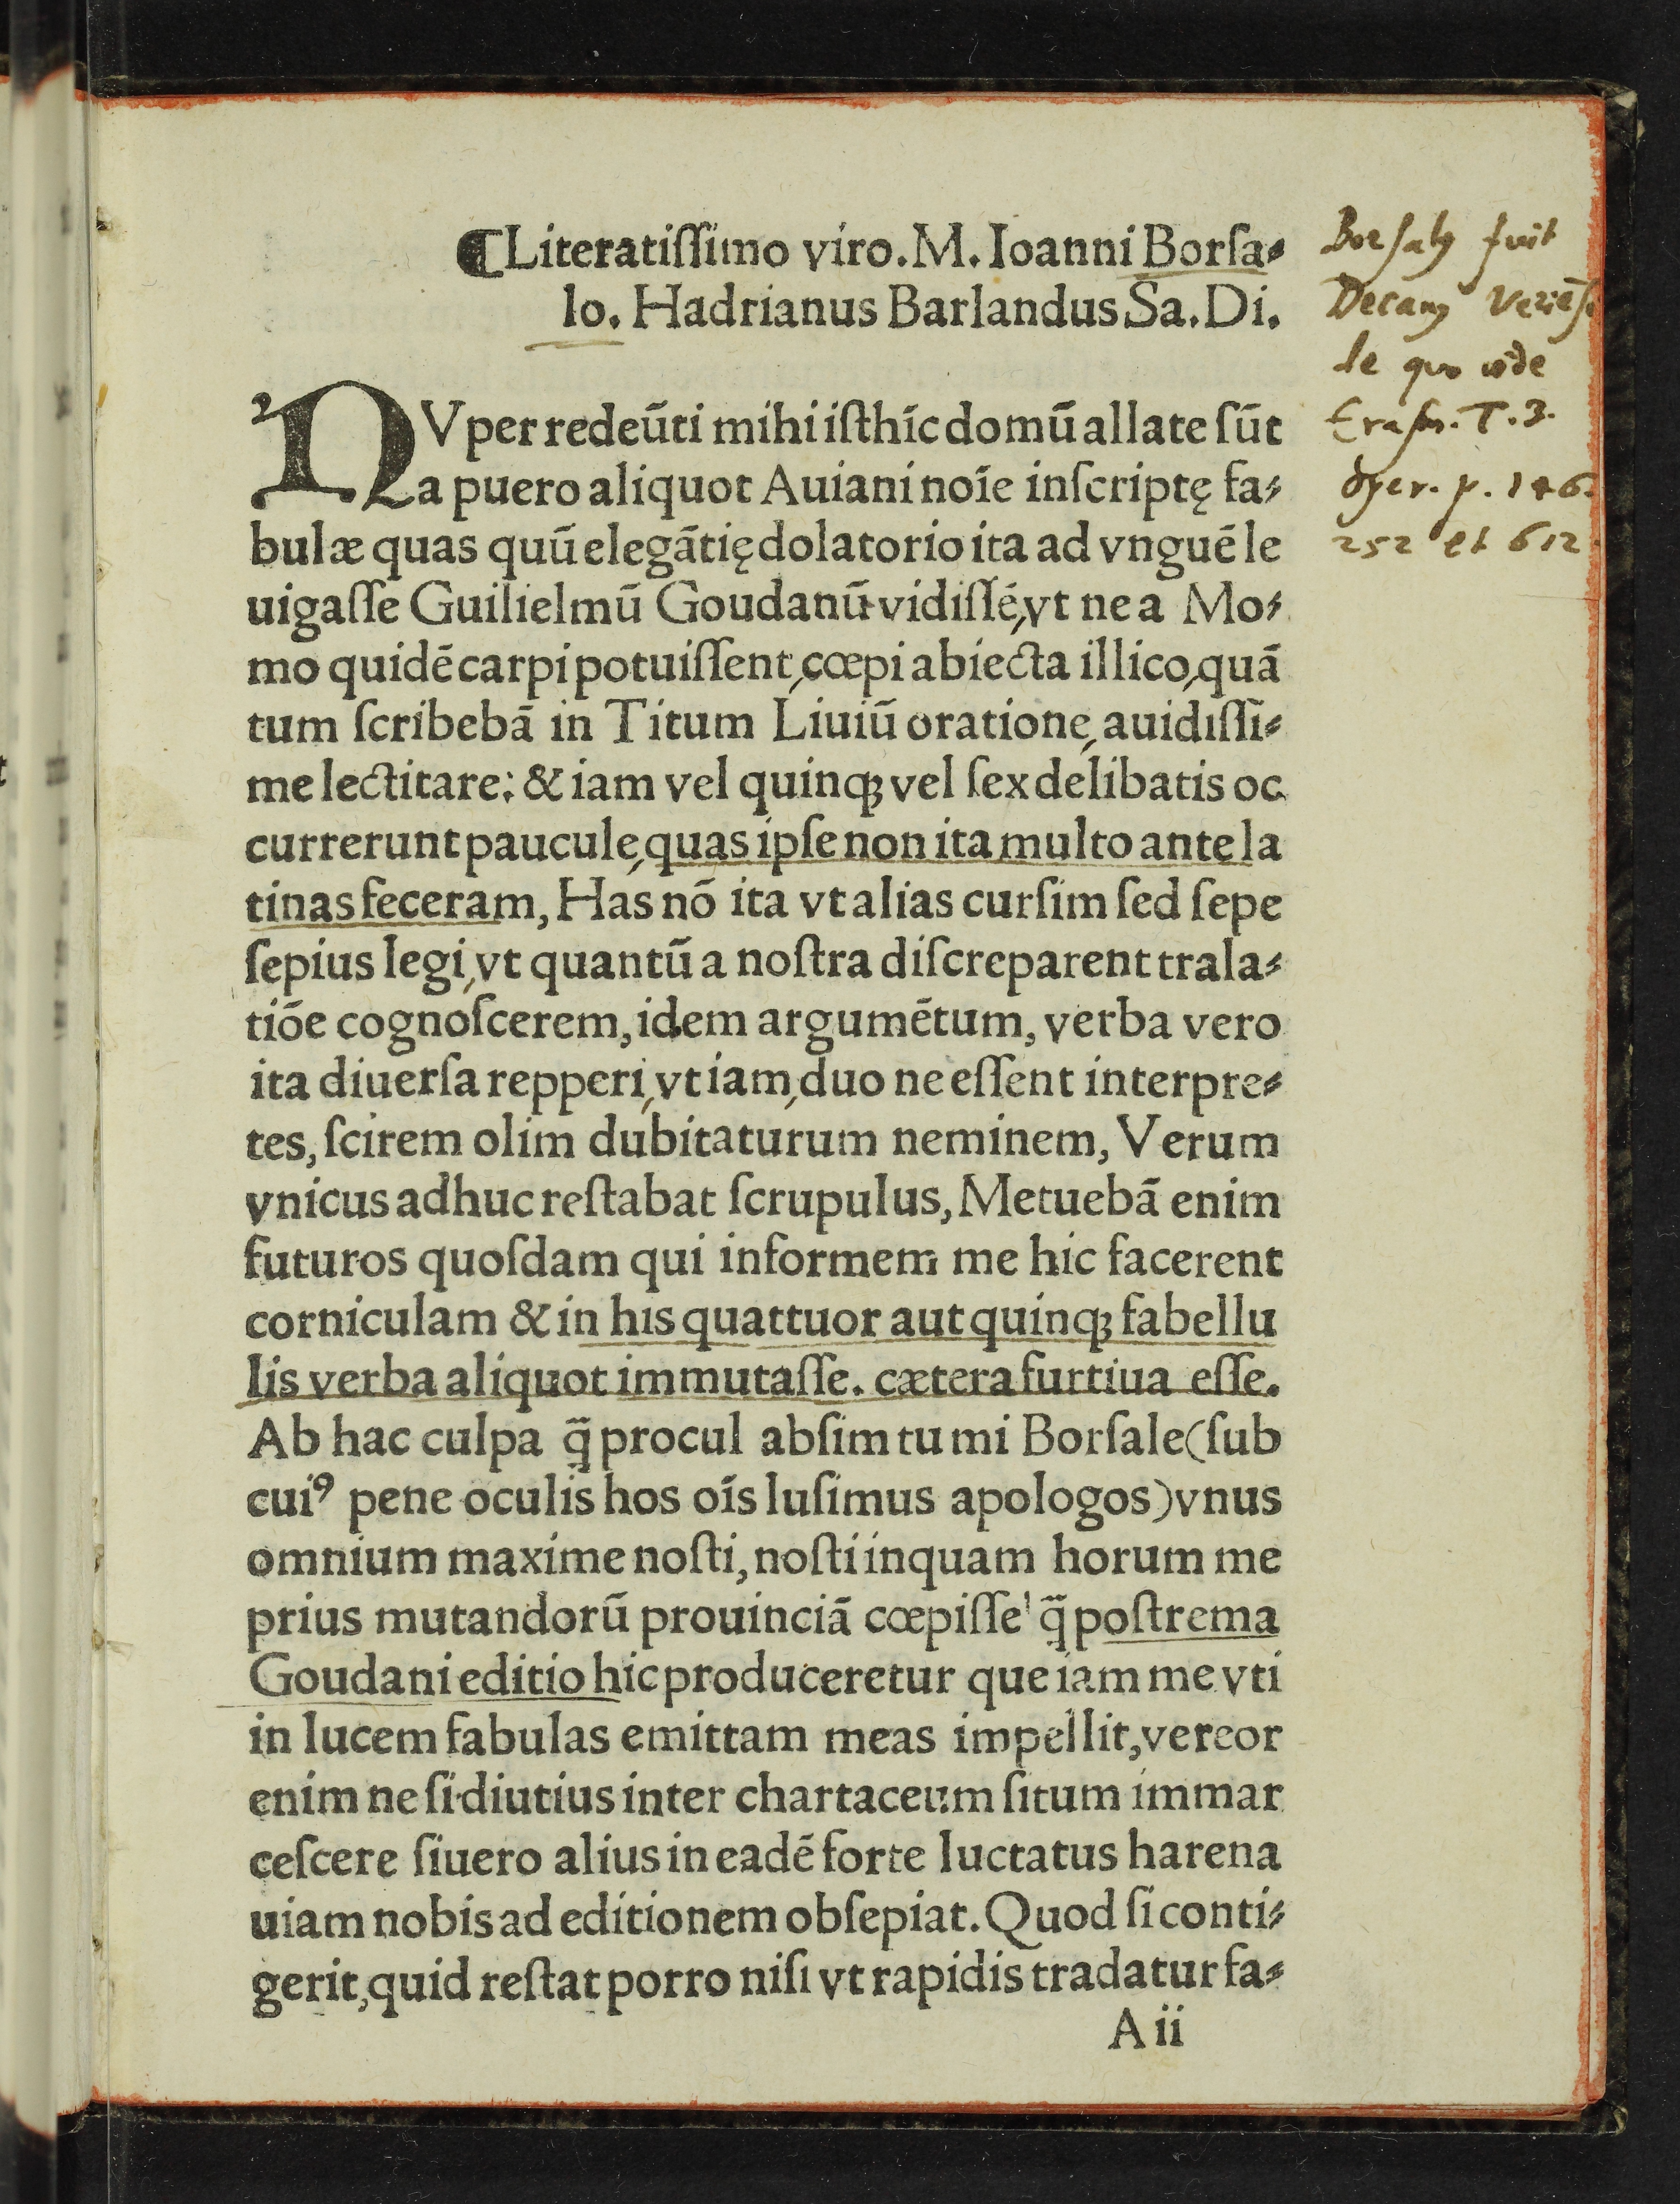 ¶Literatiſſimo viro. M. Ioanni Borſa⸗
lo. Hadrianus Barlandus Sa. Di.
NVper redeūti mihi iſthīc domū allate ſūt
a puero aliquot Auiani noīe inſcriptę fa⸗
bulæ quas quū elegātię dolatorio ita ad vnguē le
uigaſſe Guilielmū Goudanū vidiſſē, vt ne a Mo⸗
mo quidē carpi potuiſſent, cœpi abiecta illico, quā
tum ſcribebā in Titum Liuiū oratione, auidiſſi⸗
me lectitare: & iam vel quinqꝫ vel ſex delibatis oc
currerunt paucule, quas ipſe non ita multo ante la
tinas feceram, Has nō ita vt alias curſim ſed ſepe
ſepius legi, vt quantū a noſtra diſcreparent trala⸗
tiōe cognoſcerem, idem argumētum, verba vero
ita diuerſa repperi, vt iam, duo ne eſſent interpre⸗
tes, ſcirem olim dubitaturum neminem, Verum
vnicus adhuc reſtabat ſcrupulus, Metuebā enim
futuros quoſdam qui informem me hic facerent
corniculam & in his quattuor aut quinqꝫ fabellu
lis verba aliquot immutaſſe. cætera furtiua eſſe.
Ab hac culpa q̃ procul abſim tu mi Borſale (ſub
cuiꝰ pene oculis hos oīs luſimus apologos) vnus
omnium maxime noſti, noſti inquam horum me
prius mutandorū prouinciā cœpiſſe q̃ poſtrema
Goudani editio hic produceretur que iam me vti
in lucem fabulas emittam meas impellit, vereor
enim ne ſi diutius inter chartaceum ſitum immar
ceſcere ſiuero alius in eadē forte luctatus harena
uiam nobis ad editionem obſepiat. Quod ſi conti⸗
gerit, quid reſtat porro niſi vt rapidis tradatur fa⸗
A ii
Borſalꝰ fuit
Decanꝰ Veriēſ.
de quo vide
Eraſm. T. 3.
oper. p. 146.
252 et 612.